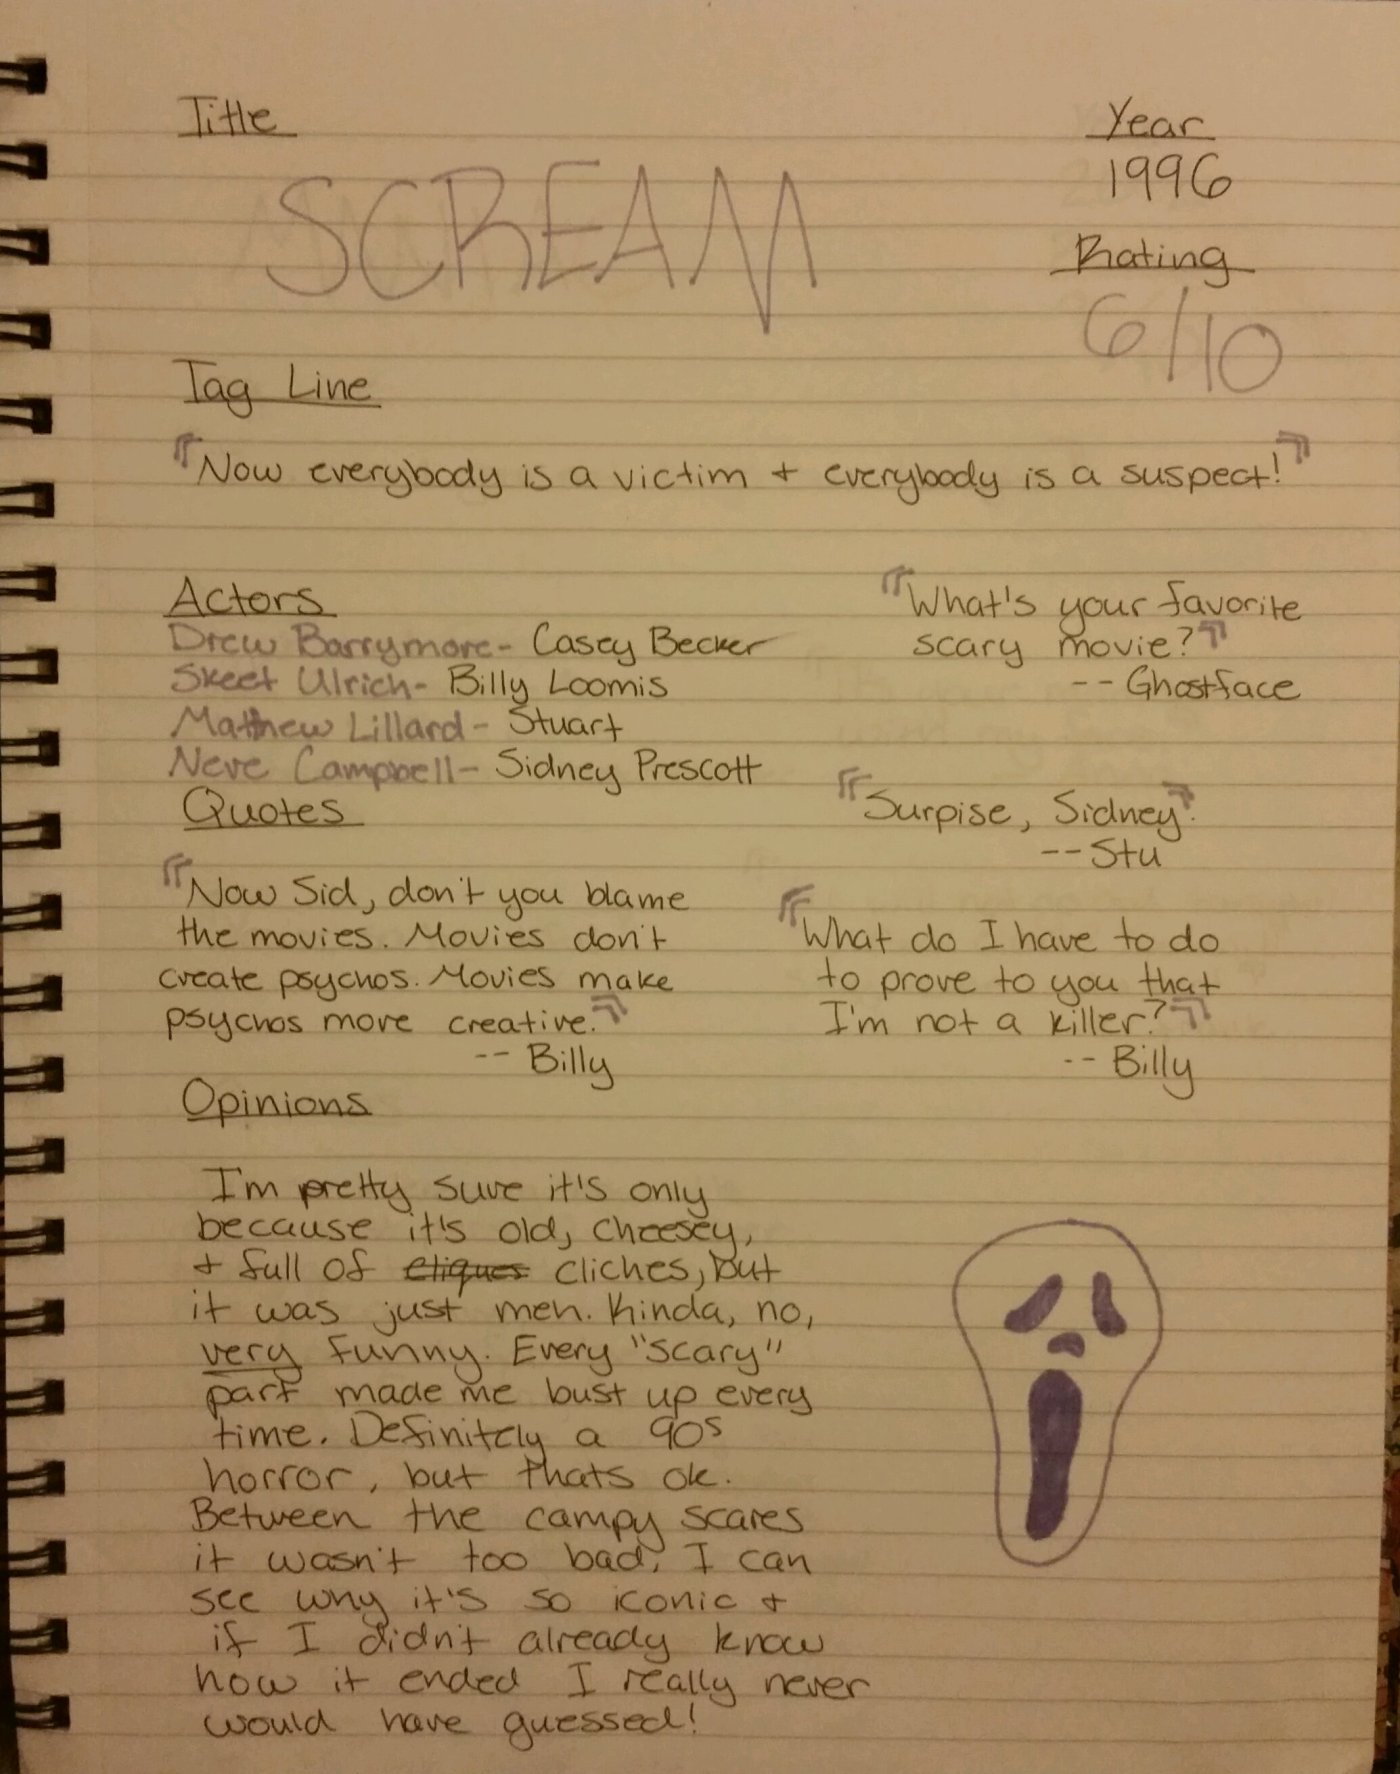 Title
SCREAM
Year
1996
Rating
6/10
Tag Line
"Now everybody is a victim + everybody is a suspect!"
Actors
Drew Barrymore- Casey Becker
Skeet Ulrich- Billy Loomis
Matthew Lillard- Stuart
Neve Campbell- Sidney Prescott
"What's your favorite
scary movie?"
-- Ghostface
Quotes
"Surpise, Sidney."
-- Stu
"Now Sid, don't you blame
the movies. Movies don't
create psychos. Movies make
psychos more creative."
-- Billy
"What do I have to do
to prove to you that
I'm not a killer?"
-- Billy
Opinions
I'm pretty sure it's only
because it's old, cheesey,
+ full of cliques cliches, but
it was just meh. Kinda, no,
very funny. Every "scary"
part made me bust up every
time. Definitely a 90s
horror, but thats ok.
Between the campy scares
it wasn't too bad. I can
see why it's so iconic +
if I didn't already know
how it ended I really never
would have guessed!